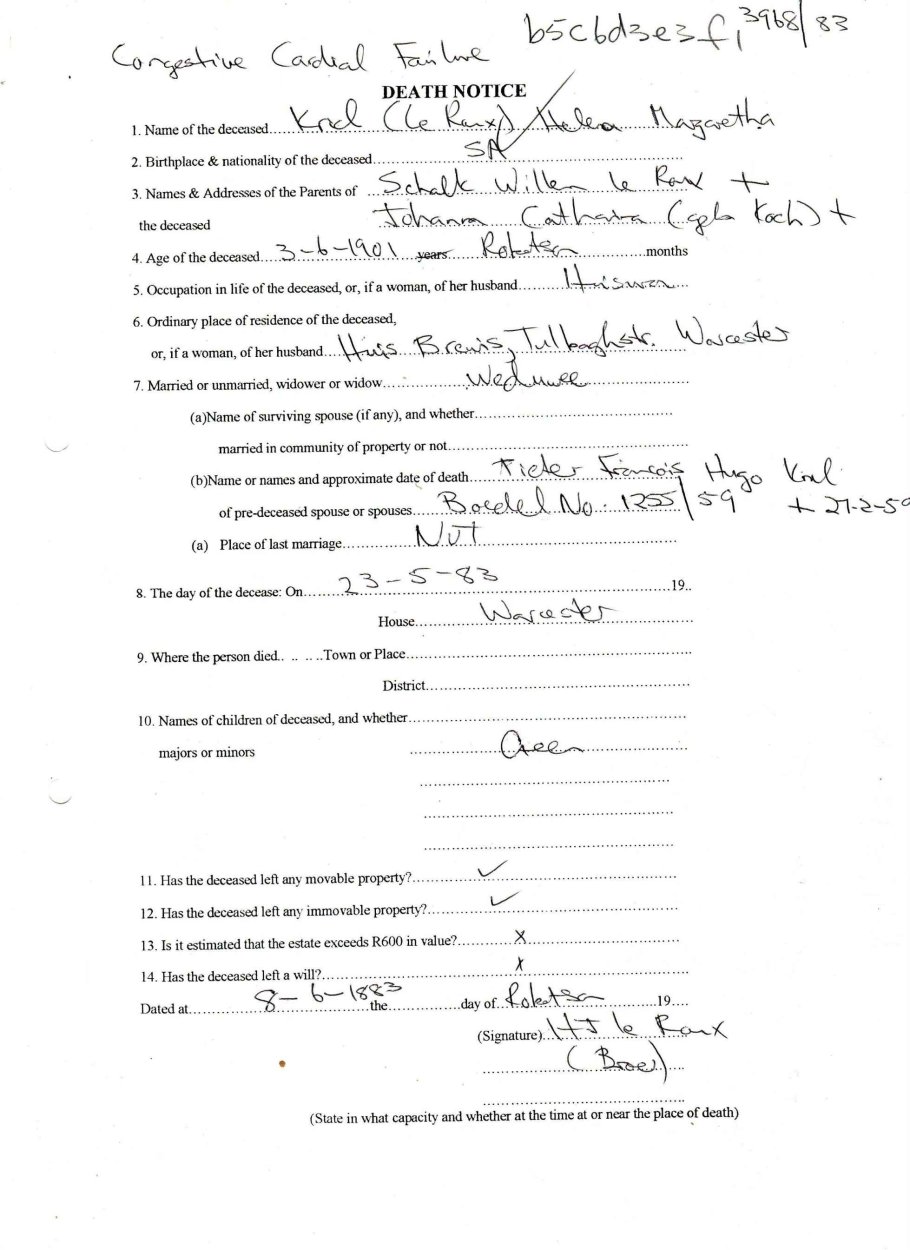 b5c6d3e3f1 3968/83
Congestive Cardial Failure
DEATH NOTICE
1. Name of the deceased....Knol (le Roux) Helena Magaretha
2. Birthplace & nationality of the deceased....SA
3. Names & Addresses of the Parents of ....Schalk Willem le Roux +
the deceased Johanna Catharina (geb Koch) +
4. Age of the deceased....3-6-1901 years....Robertson....months
5. Occupation in life of the deceased, or, if a woman, of her husband....Huisvrou....
6. Ordinary place of residence of the deceased,
or, if a woman, of her husband....Huis Brewis, Tulbaghstr. Worcester
7. Married or unmarried, widower or widow....Weduwee....
(a)Name of surviving spouse (if any), and whether....
married in community of property or not....
(b)Name or names and approximate date of death....Pieter Francois Hugo Knol
of pre-deceased spouse or spouses....Boedel No: 1255/59 + 27-2-59
(a) Place of last marriage....NVT....
8. The day of the decease: On....23-5-83....19..
House....Worcester....
9. Where the person died.. .. ....Town or Place....
District....
10. Names of children of deceased, and whether....
majors or minors ....Geen....
11. Has the deceased left any movable property?....✓....
12. Has the deceased left any immovable property?....✓....
13. Is it estimated that the estate exceeds R600 in value?....X....
14. Has the deceased left a will?....X....
Dated at....8-6-1883....the....day of..Robertson....19....
(Signature)..HJ le Roux
(Broer)....
(State in what capacity and whether at the time at or near the place of death)